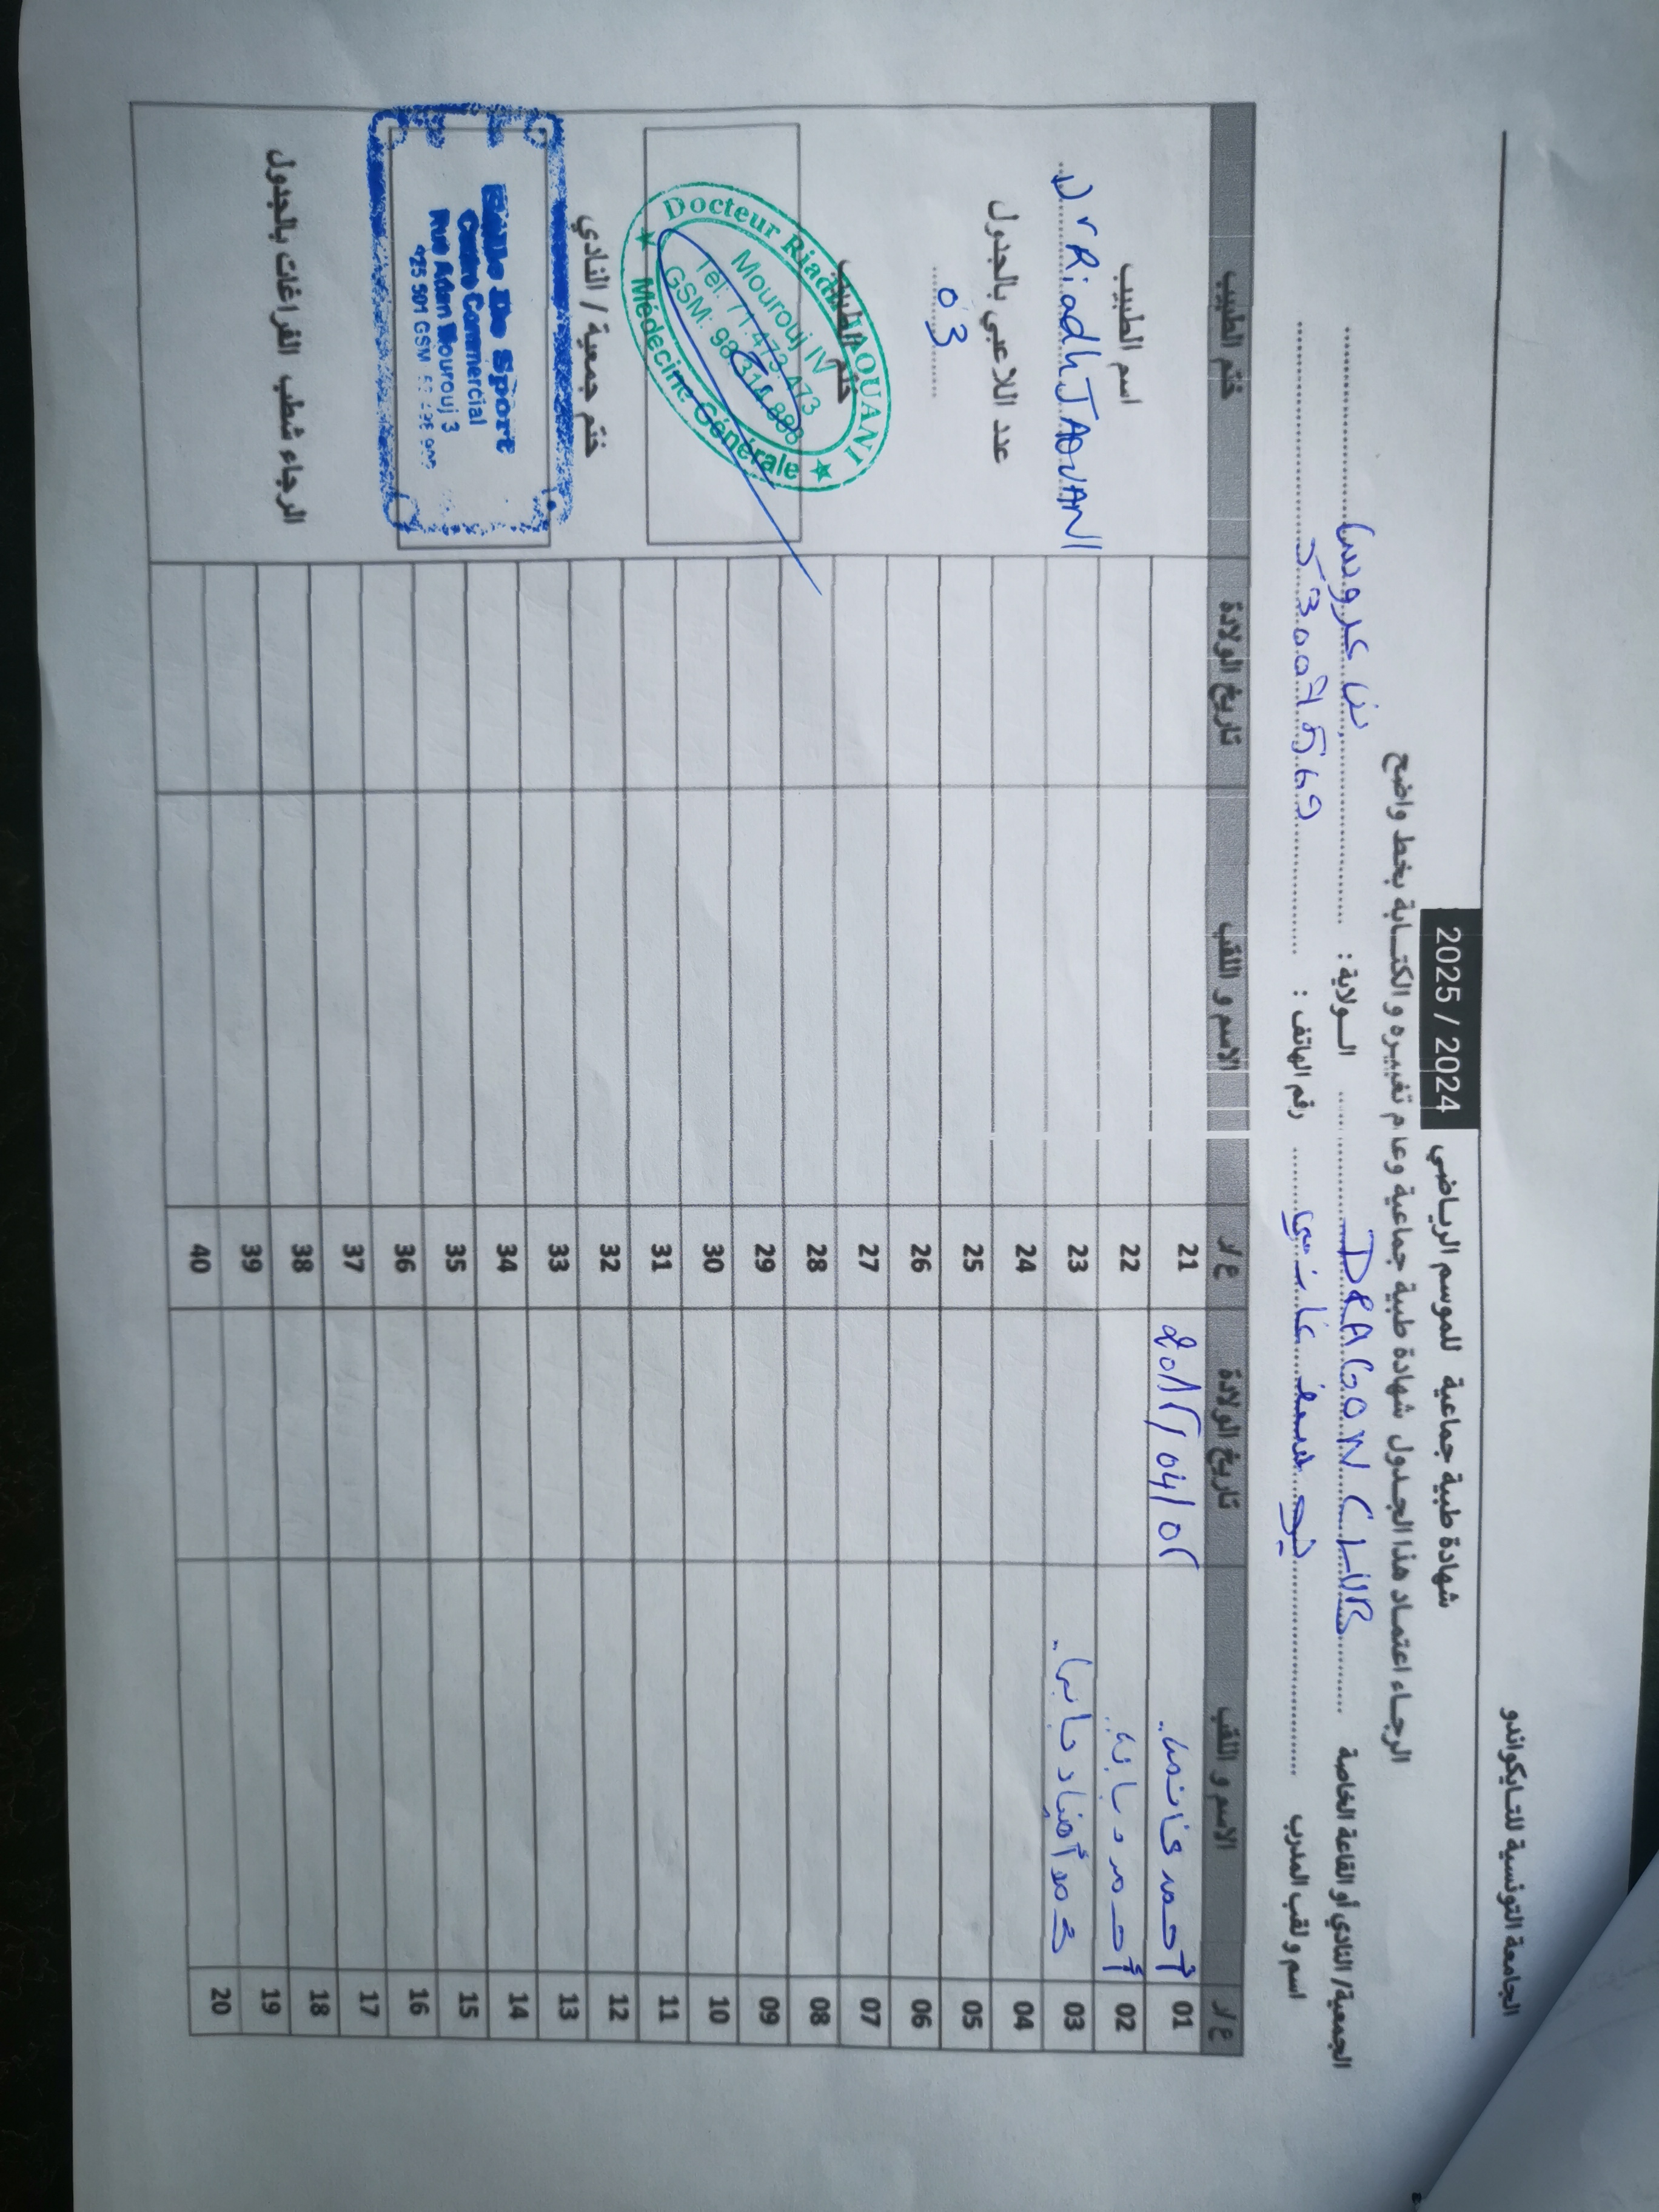 الجامعة التونسية للتايكواندو
شهادة طبية جماعية للموسم الرياضي 2024 / 2025
الرجاء اعتماد هذا الجدول شهادة طبية جماعية وعدم تغييره و الكتابة بخط واضح
الجمعية/ النادي أو القاعة الخاصة DRAGON CLUB الولاية : بن عروس
اسم و لقب المدرب رقم الهاتف : 53007569
ع / ر الاسم و اللقب تاريخ الولادة ع / ر الاسم و اللقب تاريخ الولادة ختم الطبيب
01 أحمد 21
02 أحمد 22
03 23
04 24
05 25
06 26
07 27
08 28
09 29
10 30
11 31
12 32
13 33
14 34
15 35
16 36
17 37
18 38
19 39
20 40
اسم الطبيب
Dr Riadh JAOUANI
عدد اللاعبي بالجدول
03
ختم الطبيب
Docteur Riadh JAOUANI
Mourouj IV
Tél: 71.473.473
GSM: 98 314 888
★ Médecine Générale ★
ختم جمعية / النادي
Salle De Sport
Centre Commercial
Rue Adam Mourouj 3
الرجاء شطب الفراغات بالجدول